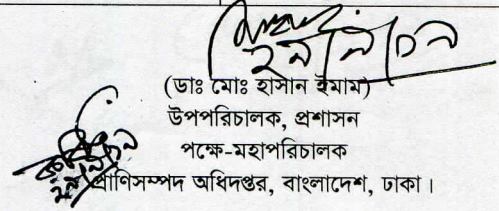 (ডাঃ মোঃ হাসান ইমাম)
উপপরিচালক, প্রশাসন
পক্ষে-মহাপরিচালক
প্রাণিসম্পদ অধিদপ্তর, বাংলাদেশ, ঢাকা।